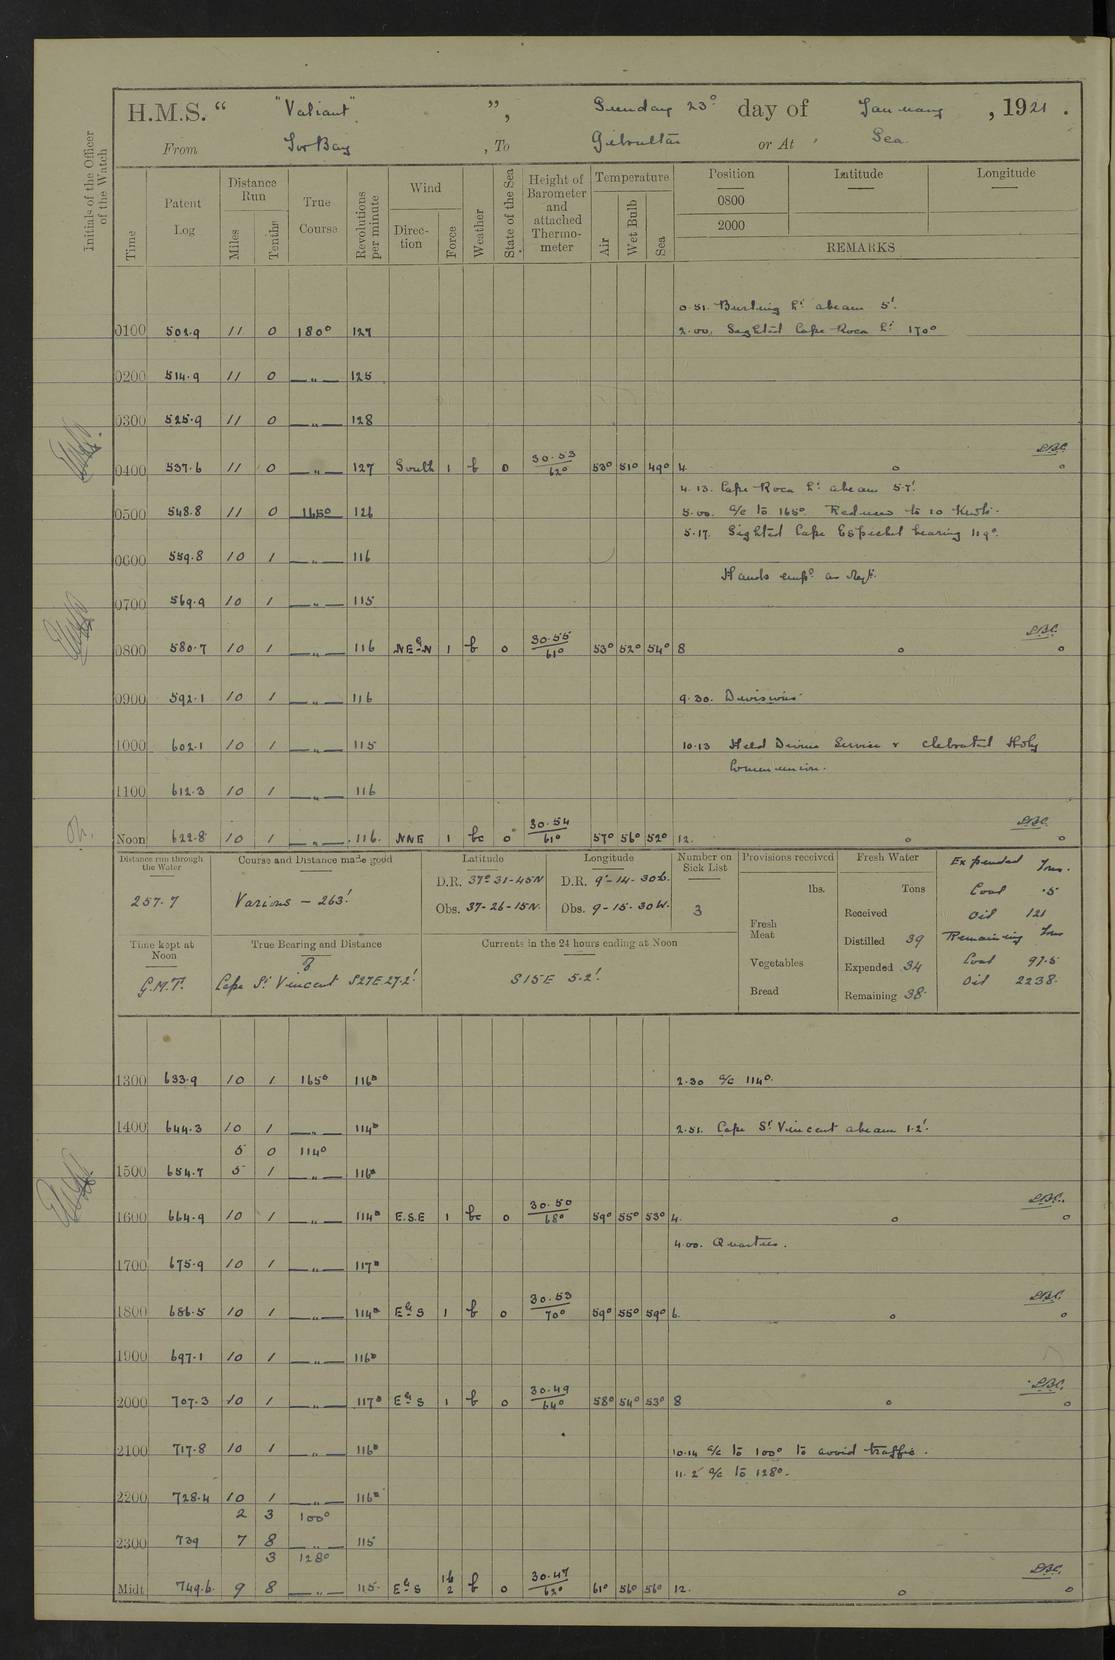 H.M.S. " "Valiant" ", Sunday 23º day of January, 1921.
From Tor Bay, To Gibraltar or At Sea
Initials of the Officer of the Watch
Time Patent Log Distance Run Miles Tenths True Course Revolutions per minute Wind Direction Force Weather State of the Sea Height of Barometer and attached Thermometer Temperature Air Wet Bulb Sea Position Latitude Longitude
0800
2000
REMARKS
0.51. Burling Lt abeam 5'.
0100 502.9 11 0 180° 127 2.00. Sighted Cape Roca Lt 170°
0200 514.9 11 0 —„— 125
0300 525.9 11 0 —„— 128
0400 537.6 11 0 —„— 127 South 1 b 0 30.53 62° 53° 51° 49° 4
4.13. Cape Roca Lt abeam 5.7'.
0500 548.8 11 0 165° 126 5.00. a/c to 165°. Reduced to 10 knots.
5.17. Sighted Cape Espichel bearing 119°.
0600 559.8 10 1 —„— 116
Hands empd as reqd.
0700 569.9 10 1 —„— 115
0800 580.7 10 1 —„— 116 NEbyN 1 b 0 30.55 61° 53° 52° 54° 8
0900 592.1 10 1 —„— 116 9.30. Divisions
1000 602.1 10 1 —„— 115 10.13 Held Divine Service & clebrated Holy
Communion.
1100 612.3 10 1 —„— 116
Noon 622.8 10 1 —„— 116. NNE 1 bc 0 30.54 61° 57° 56° 52° 12.
Distance run through the Water Course and Distance made good Latitude Longitude Number on Sick List Provisions received Fresh Water Expended Tons.
257.7 Various – 263' D.R. 37°-31-45N D.R. 9°-14-30W. lbs. Tons Coal .5
Obs. 37-26-15N. Obs. 9-15-30W. 3 Received Oil 121
Fresh Meat Distilled 39 Remaining Tons
Time kept at Noon True Bearing and Distance Currents in the 24 hours ending at Noon
G.M.T. Cape St Vincent S27E 27.2' S15E 5.2' Vegetables Expended 34 Coal 97.5
Bread Remaining 38. Oil 2238.
1300 633.9 10 1 165° 116° 2.30 a/c 114°.
1400 644.3 10 1 —„— 114° 2.51. Cape St Vincent abeam 1.2'.
5 0 114°
1500 654.7 5 1 —„— 116°
1600 664.9 10 1 —„— 114° E.S.E 1 bc 0 30.50 68° 59° 55° 53° 4.
4.00. Quarters.
1700 675.9 10 1 —„— 117°
1800 686.5 10 1 —„— 114° EbyS 1 b 0 30.53 70° 59° 55° 59° 6.
1900 697.1 10 1 —„— 116°
2000 707.3 10 1 —„— 117° EbyS 1 b 0 30.49 64° 58° 54° 53° 8
2100 717.8 10 1 —„— 116° 10.14 a/c to 100° to avoid traffic.
11.2 a/c to 128°.
2200 728.4 10 1 —„— 116°
2 3 100°
2300 739 7 8 —„— 115
3 128°
Midt 749.6. 9 8 —„— 115. EbyS 1 to 2 b 0 30.47 62° 61° 56° 56° 12.